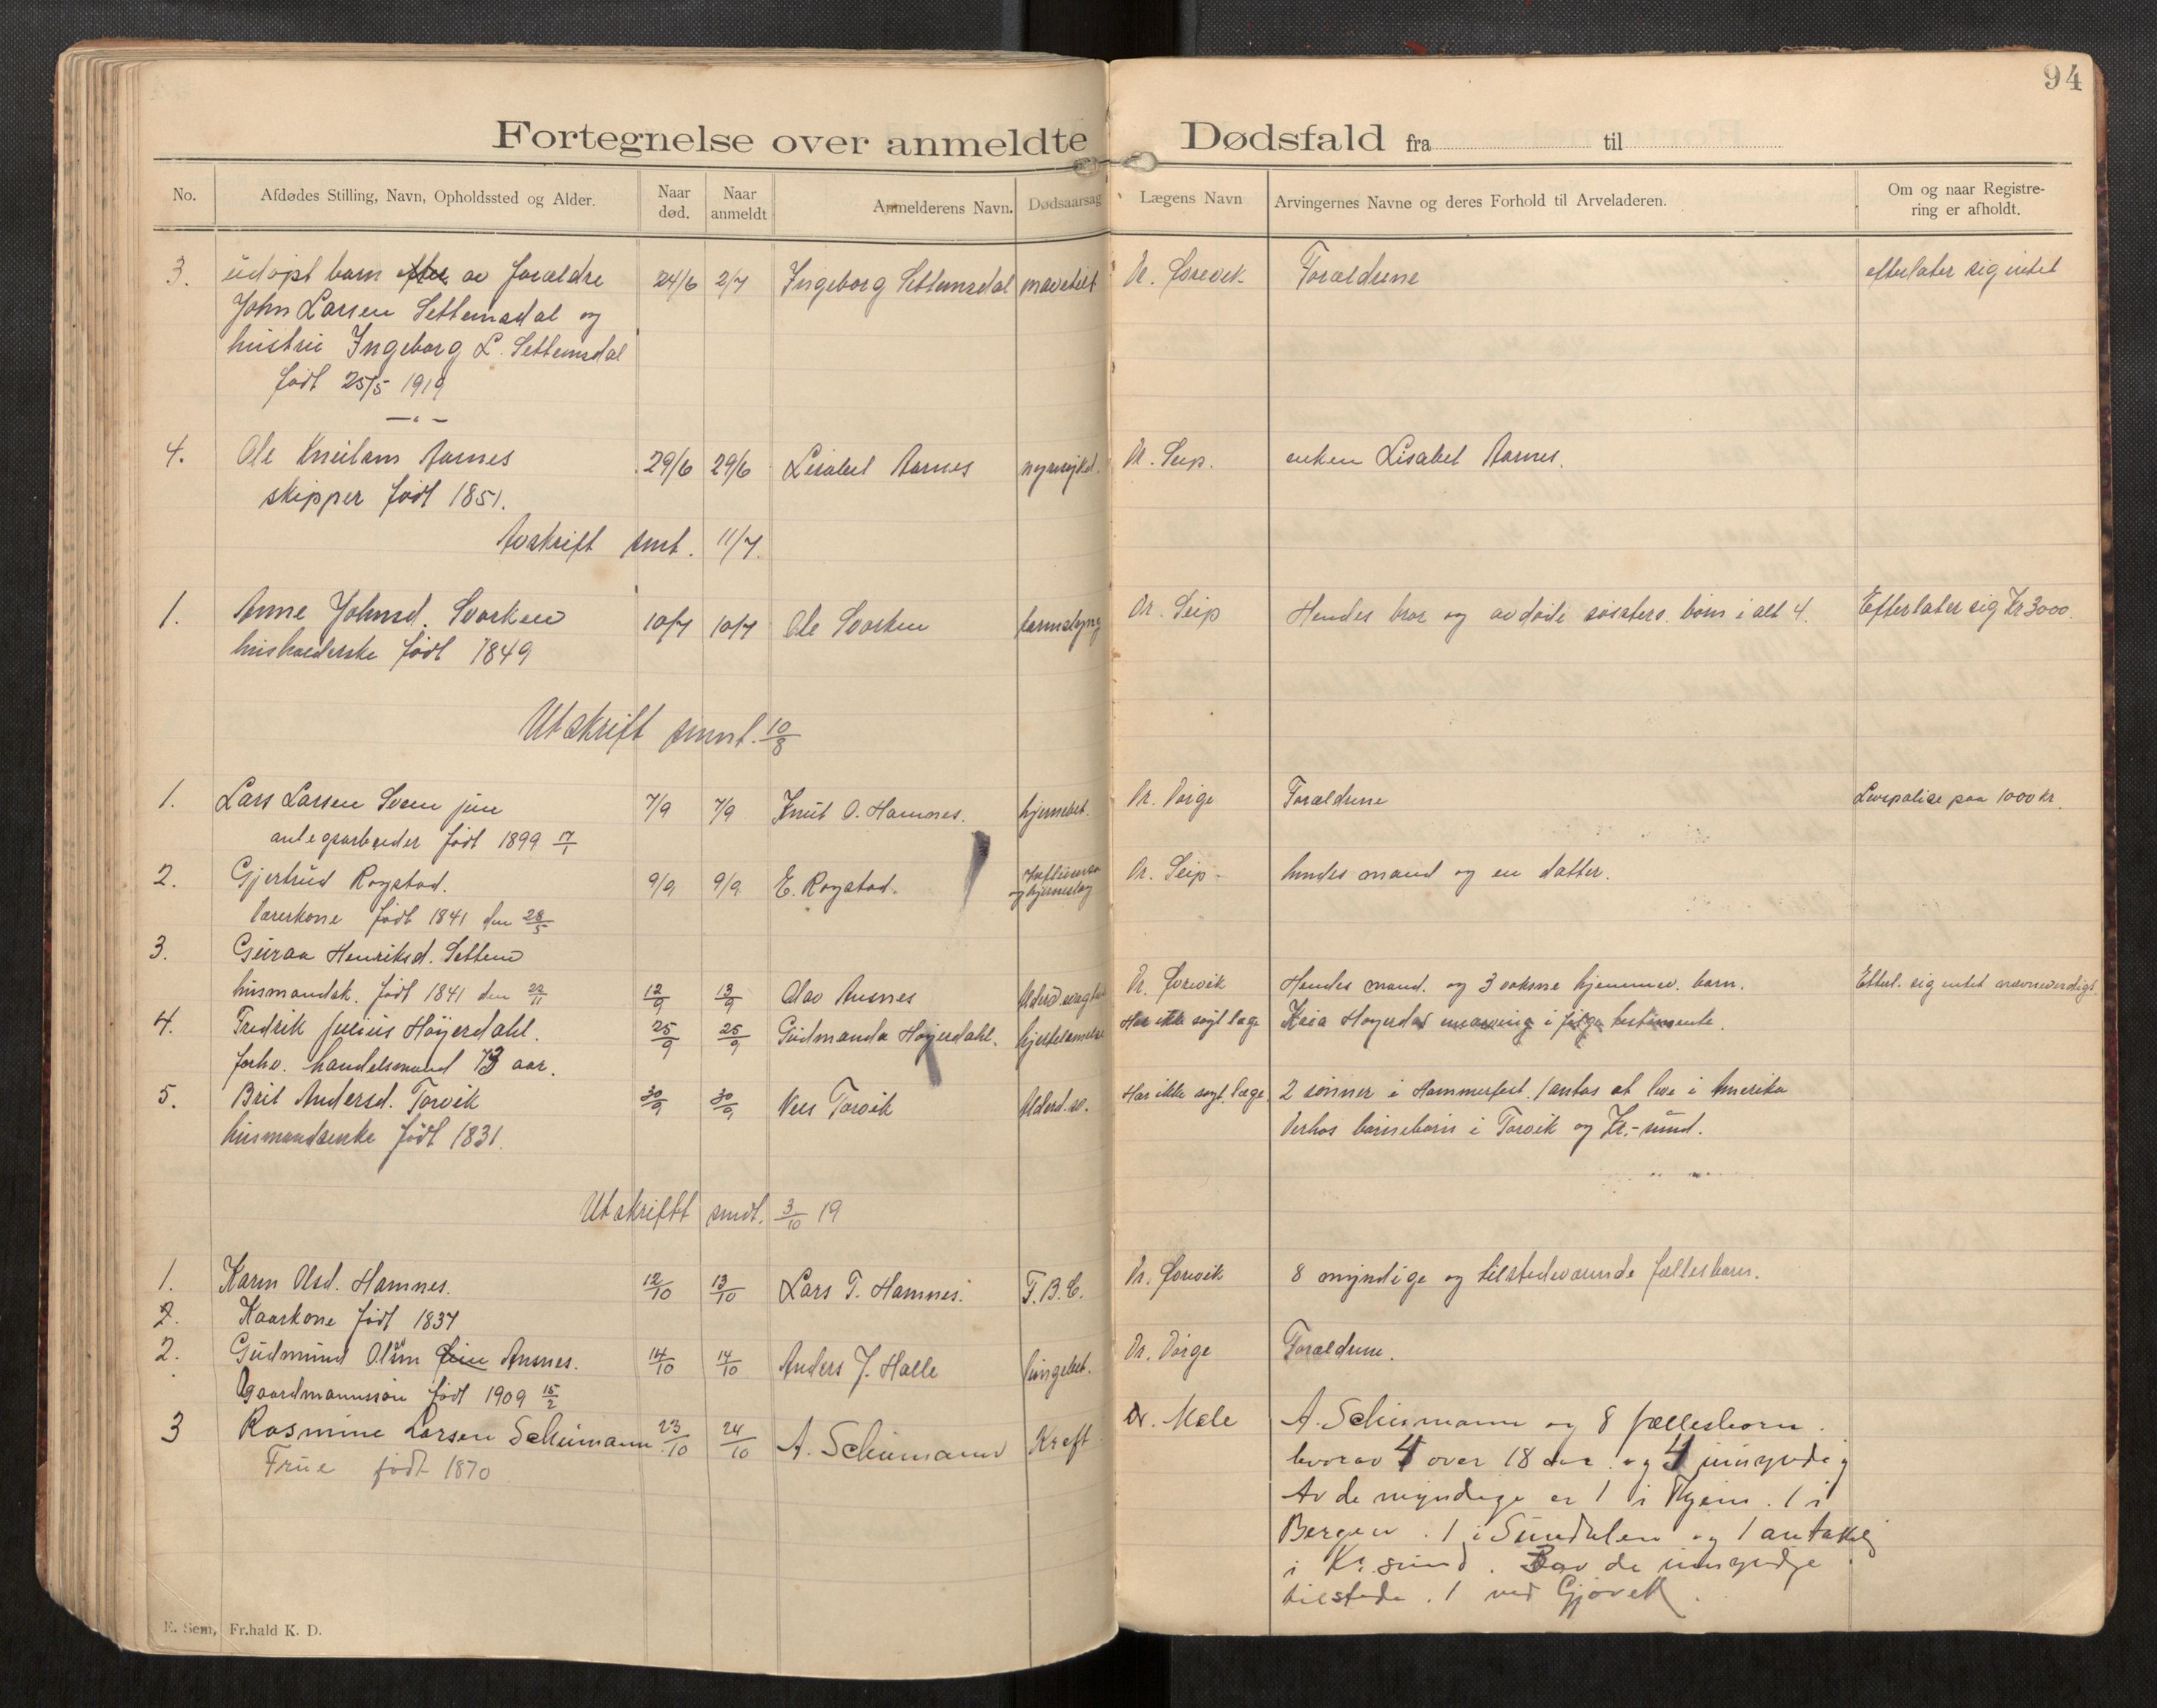 94
Fortegnelse over anmeldte Dødsfald fra til
No. Afdødes Stilling, Navn, Opholdssted og Alder. Naar død. Naar anmeldt Anmelderens Navn. Dødsaarsag Lægens Navn Arvingernes Navne og deres Forhold til Arveladeren. Om og naar Registrering er afholdt.
3. udøpt barn efter av forældre 24/6 2/7 Ingeborg Settemsdal Dr. Forældrene efterlater sig intet
John Larsen Settemsdal og
hustru Ingeborg L. Settemsdal
født 25/5 1919
4. Ole Knutsen Aarnes 29/6 29/6 Lisabet Aarnes Dr. Seip. enken Lisabet Aarnes.
skipper født 1851.
Avskrift sent. 11/7.
1. Anne Johnsd. Svorken 10/7 10/7 Ole Svorken tarmslyng Dr. Seip Hendes bror og avdøde søsters barn i alt 4. Efterlater sig Kr 3000.
husholderske født 1849
Utskrift sennt. 10/8
1. Lars Larsen Sveen jun 7/9 7/9 Knut O. Hamnes. hjernebet. Dr. Forældrene Livspolise paa 1000 kr.
anlegsarbeider født 1899 17/1
2. Gjertrud Rogstad. 9/9 9/9 E. Rogstad. og hjerneslag Dr. Seip hendes mand og en datter.
født 1841 den 28/5
3. Guroa Henriksd. Settem
husmandsk. født 1841 den 22/11 12/9 13/9 Olav Ansnes Dr. Hendes mand og 3 voksne hjemmev. barn. Efterl. sig intet nævneverdigt.
4. Fredrik Julius Höyerdahl. 25/9 25/9 Gudmanda Høyerdahl. hjertelammelse Har ikke søgt læge Høyerdal i følge testamente.
forhv. handelsmand 73 aar.
5. Brit Andersd. Torvik 30/9 30/9 Torvik Alderd.sv. Har ikke søgt læge 2 sönner i Hammerfest. 1 antas at leve i Amerika
husmandsenke født 1831. Derhos barnebarn i Torvik og Kr.-sund.
Utskrift sendt. 3/10 19
1. Karen Olsd. Hamnes. 12/10 13/10 Lars T. Hamnes. T.B.C. Dr. 8 myndige og tilstedeværende fællesbarn.
2. Kaarkone født 1834
2. Gudmund Olsen Ansnes. 14/10 14/10 Anders J. Halle lungebet. Dr. Forældrene.
Gaardmannssön født 1909 15/2
3 Rasmine Larsen Schumann 23/10 24/10 A. Schumann Kreft Dr. Mæle A. Schumann og 8 fællesborn.
Frue født 1870 hvorav 4 over 18 aar og 4 umyndig
Av de myndige er 1 i Hjem. 1 i
Bergen. 1 i Sundalen og 1 antakelig
i Kr.sund. 3 av de umyndige
tilstede. 1 ved Gjøvik.
E. Sem, Fr.hald K. D.